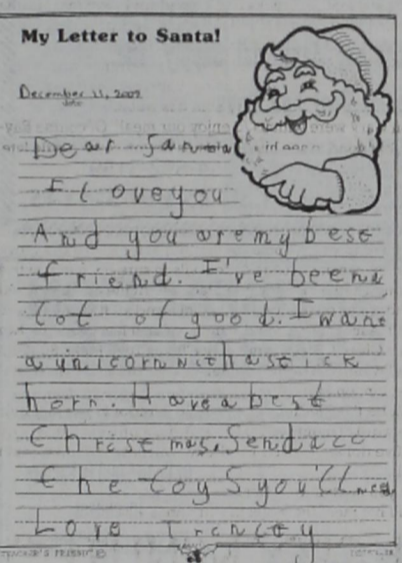 My Letter to Santa!
December 11, 2007
date
Dear Santa
I Loveyou
And you aremy best
friend. I've been a
lot of good. I want
a unicorn with a stick
horn. Have a best
Christmas. Send all
the toys you'll need
Love